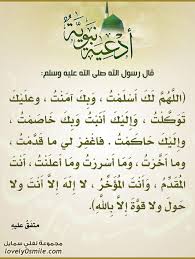 أدعية نبوية
قال رسول الله صلى الله عليه وسلم:
(اللَّهُمَّ لَكَ أَسْلَمْتُ ، وَبِكَ آمَنْتُ ، وعَلَيْكَ
تَوَكَّلْتُ ، وَإِلَيْكَ أَنَبْتُ وَبِكَ خَاصَمْتُ ،
وَإِلَيْكَ حَاكَمْتُ . فاغْفِر لِي ما قَدَّمْتُ ،
وما أَخَّرْتُ ، وَمَا أَسْرَرْتُ ومَا أَعْلَنْتُ ، أَنْتَ
المُقَدِّمُ ، وَأَنْتَ المُؤَخِّرُ ، لا إِلَهَ إِلاَّ أَنْتَ ولا
حَوْلَ ولا قوَّةَ إِلاَّ بِاللَّهِ).
متفق عليه
مجموعة لفلي سمايل
lovely0smile.com